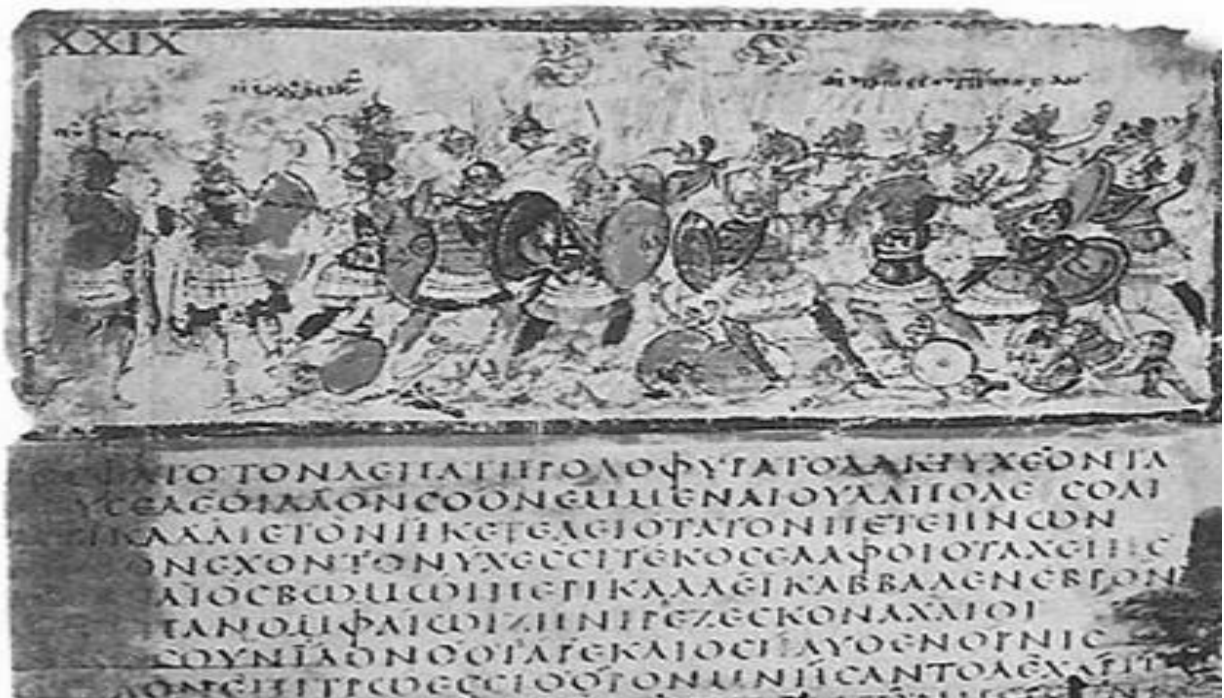 XXIX
ϹΦΑΤΟΤΟΝΔΕΠΑΤΗΡΟΛΟΦΥΡΑΤΟΔΑΚΡΥΧΕΟΝΤΑ
ΥϹΕΔΕΟΙΛΑΟΝϹΟΟΝΕΜΜΕΝΑΙΟΥΔΑΠΟΛΕϹΘΑΙ
ΙΚΑΔΑΙΕΤΟΝΗΚΕΤΕΛΕΙΟΤΑΤΟΝΠΕΤΕΗΝΩΝ
ΟΝΕΧΟΝΤΟΝΥΧΕϹϹΙΤΕΚΟϹΕΛΑΦΟΙΟΤΑΧΕΙΗϹ
ΔΙΟϹΒΩΜΩΙΠΕΡΙΚΑΛΛΕΙΚΑΒΒΑΛΕΝΕΒΡΟΝ
ΠΑΝΟΜΦΑΙΩΙΖΗΝΙΡΕΖΕϹΚΟΝΑΧΑΙΟΙ
ϹΟΥΝΙΔΟΝΘΟΤΑΡΕΚΔΙΟϹΗΛΥΘΕΝΟΡΝΙϹ
ΛΟΝΕΠΙΤΡΩΕϹϹΙΘΟΡΟΝΜΝΗϹΑΝΤΟΔΕΧΑΡΜ